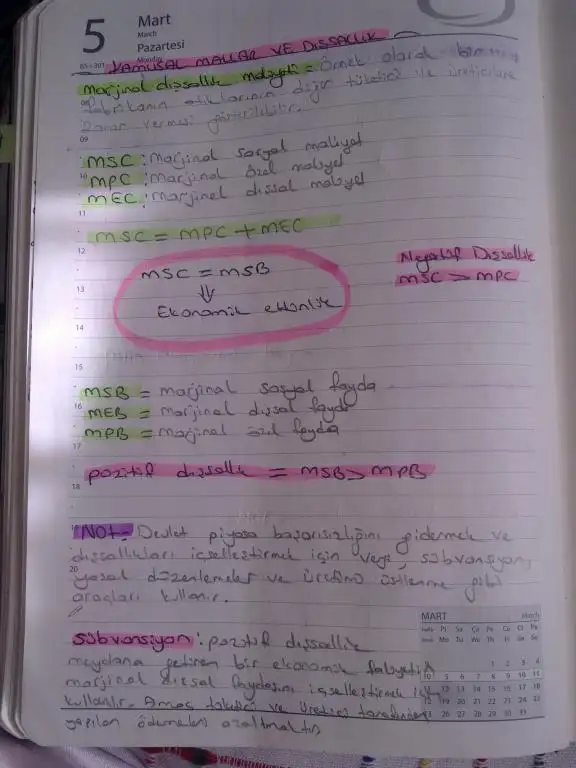 5
Mart
March
Pazartesi
Monday
65-301
KAMUSAL MALLAR VE DIŞSALLIK
marjinal dışsallık maliyeti = Örnek olarak
fabrikanın atıklarının diğer tüketici ve üreticilere
zarar vermesi gösterilebilir.
09
MSC : Marjinal sosyal maliyet
10
MPC : Marjinal özel maliyet
MEC : Marjinal dışsal maliyet
11
MSC = MPC + MEC
12
Negatif Dışsallık
MSC = MSB
MSC > MPC
13
⇓
Ekonomik etkinlik
14
15
MSB = marjinal sosyal fayda
16
MEB = marjinal dışsal fayda
MPB = Marjinal özel fayda
17
pozitif dışsallık = MSB > MPB
18
NOT = Devlet piyasa başarısızlığını gidermek ve
dışsallıkları içselleştirmek için vergi, sübvansiyon,
20
yasal düzenlemeler ve üretimi üstlenme gibi
araçları kullanır.
MART March
Sübvansiyon : pozitif dışsallık
meydana getiren bir ekonomik faliyetin
marjinal dışsal faydasını içselleştirmek için
kullanılır. Amaç tüketici ve üretici tarafından
yapılan ödemeleri azaltmaktır.
Pt Sa Ça Pe Cu Ct Pa
Mo Tu We Th Fr Sa Su
1 2 3 4
10 5 6 7 8 9 10 11
12 13 14 15 16 17 18
19 20 21 22 23 24 25
26 27 28 29 30 31